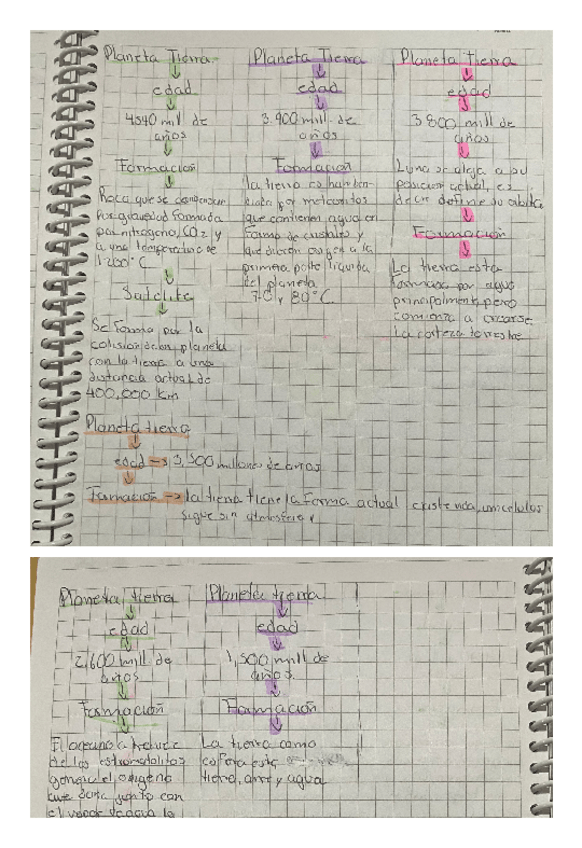 Planeta Tierra
edad
4540 mill de
años
Formación
Roca que se condensar
por gravedad formada
por nitrogeno, CO2 y
a una temperatura de
1200°C
Satelite
Se forma por la
colision de un planeta
con la tierra a una
distancia actual de
400,000 Km
Planeta Tierra
edad
3.900 mill de
años
Formación
la tierra es bomben
deada por meteoritos
que contienen agua en
forma de cristales y
que dieron origen a la
primera parte liquida
del planeta
70 y 80°C
Planeta tierra
edad
3 800 mill de
años
Luna se aleja a su
posicion actual, es
decir define su orbita
Formación
La tierra esta
formada por agua
principalment pero
comienza a crearse
la corteza terrestre
Planeta tierra
edad → 3,500 millones de años
Formación → la tierra tiene la forma actual existe vida, unicelulas
sigue sin atmosfera
Planeta tierra
edad
2,600 mill de
años
Formación
El oceano a traves
de las estromatolitos
el oxigeno
que junto con
el vapor de agua la
Planeta tierra
edad
1,500 mill de
años
Formación
La tierra como
esfera esta
tierra, aire y agua